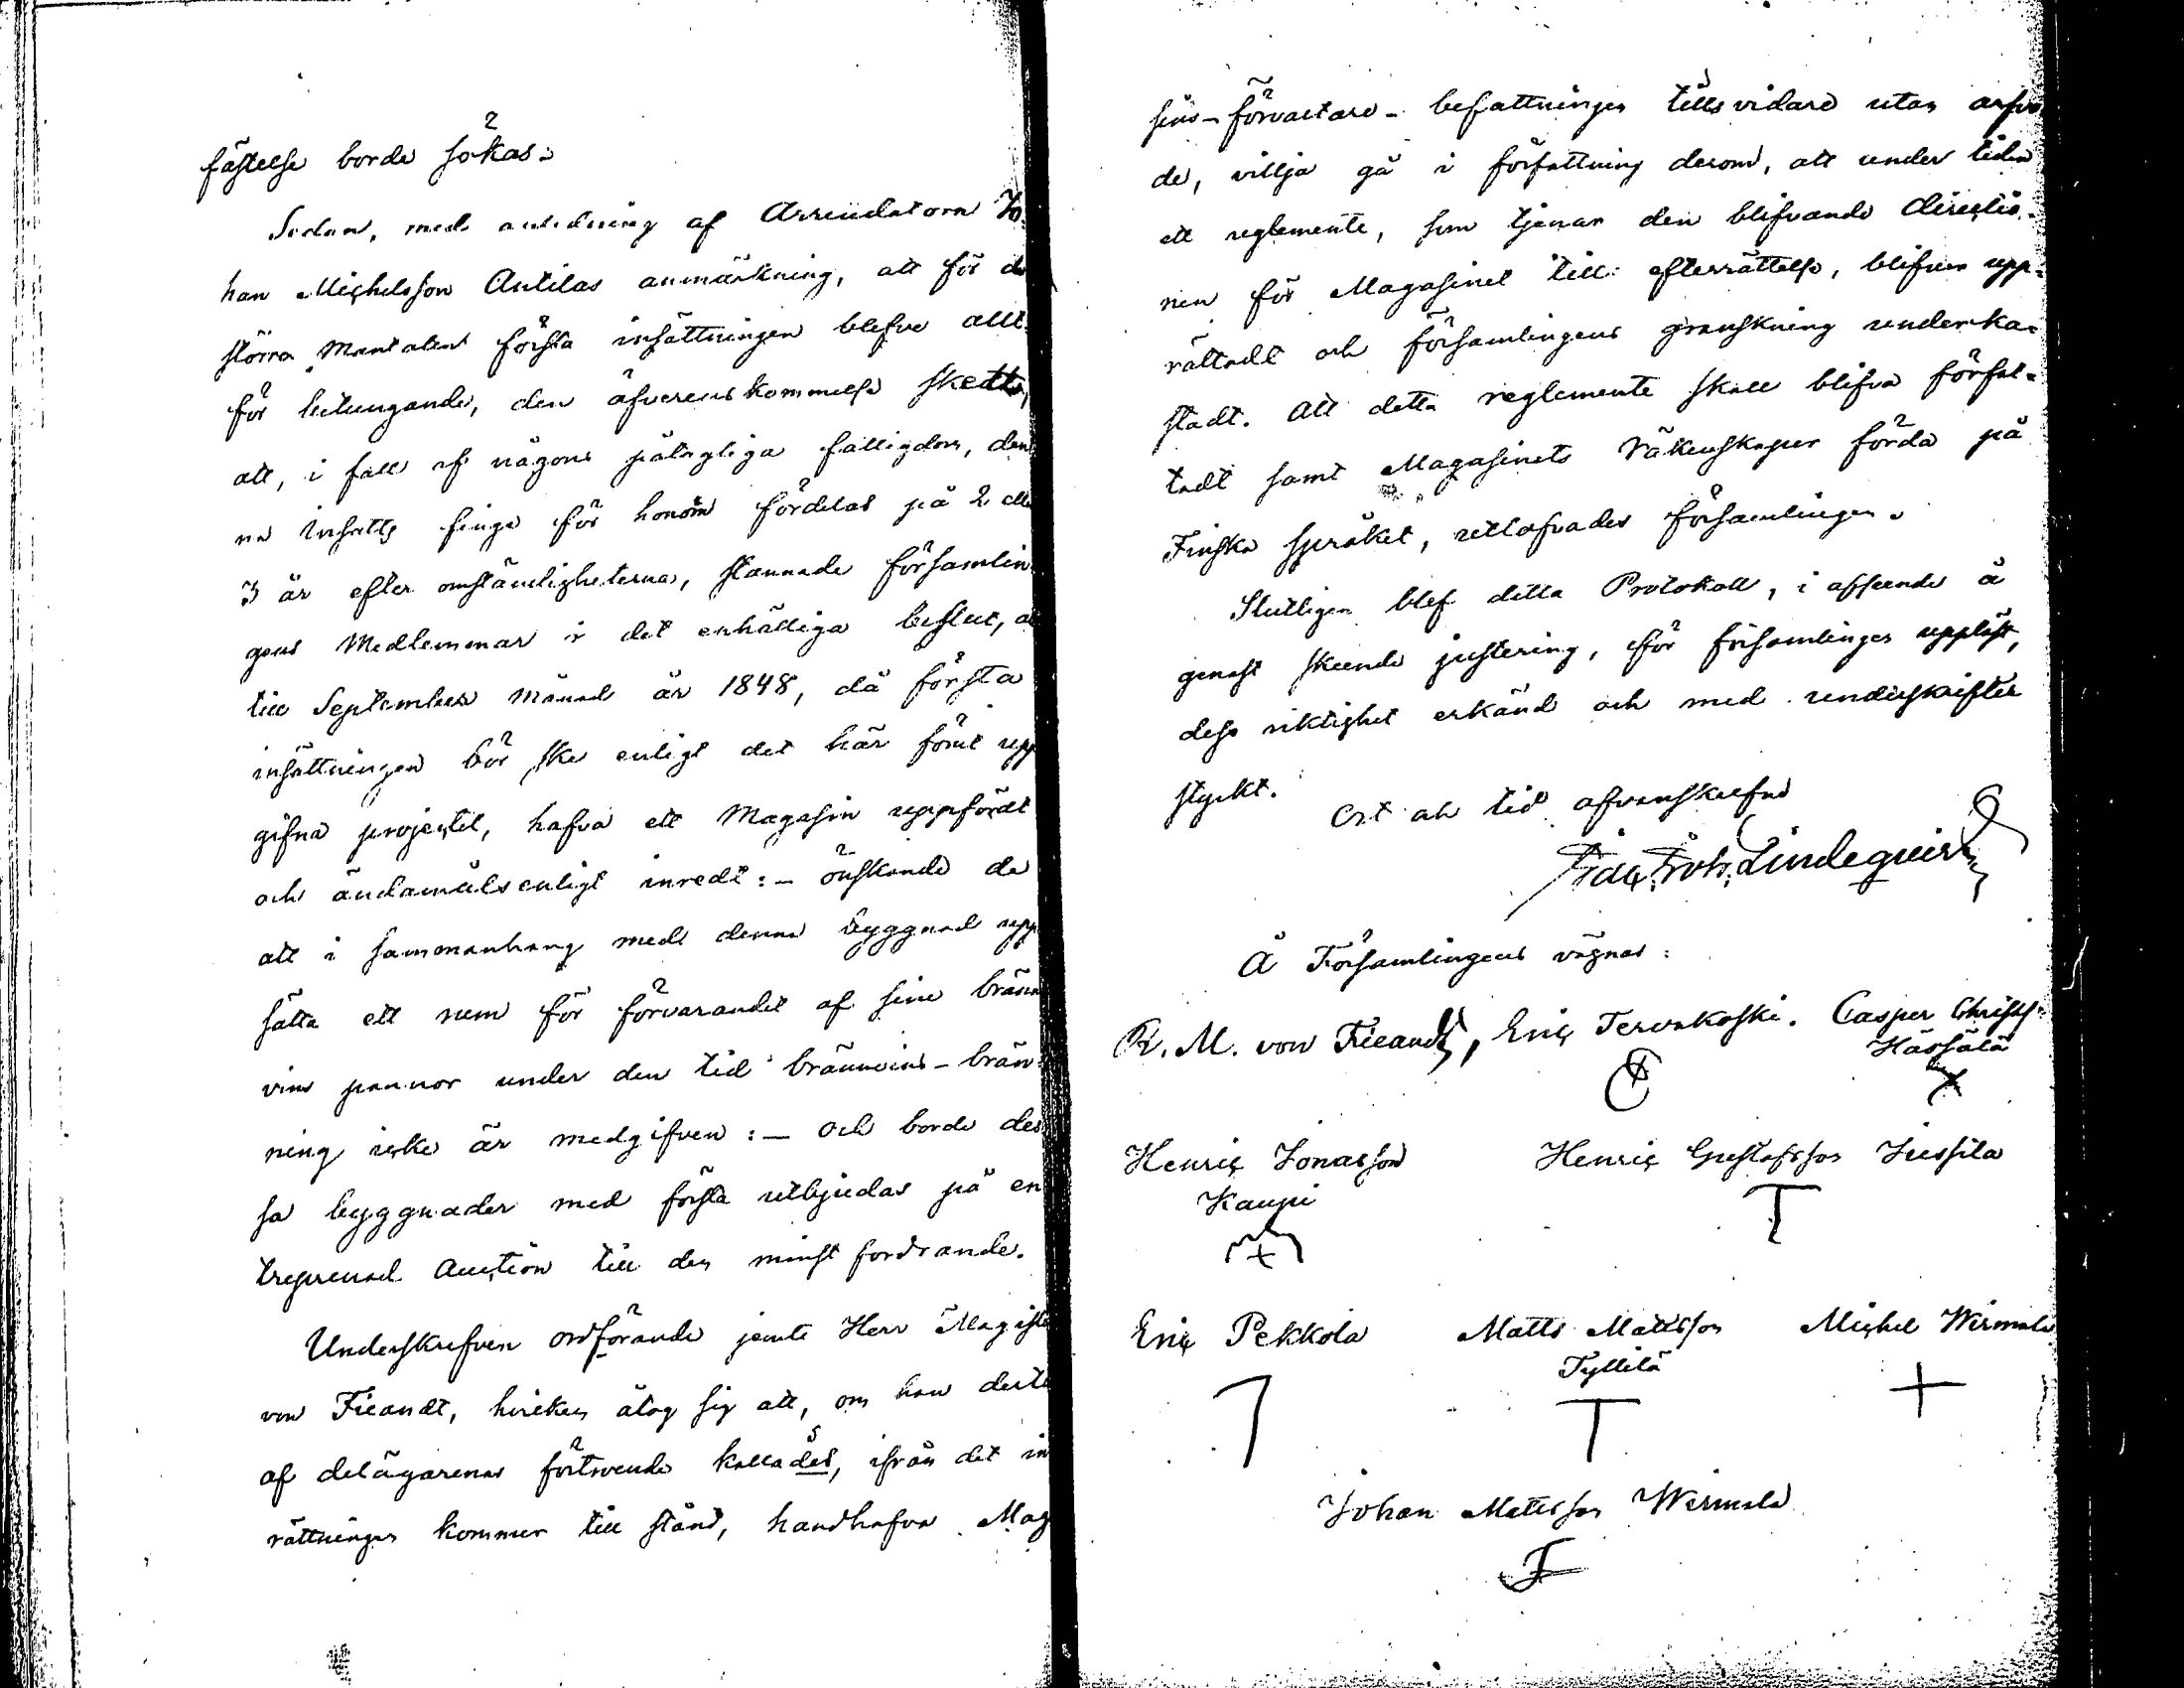 fästelse borde sökas.
Sedan, med anledning af Arrendatorn Jo-
han Michelsson Antilas anmärkning, att för de
större Mantalen första insättningen blefve allt
för betungande, den äfverenskommelse skett,
att, i fall af någons påtagliga fattigdom, den
na insatts finge för honom fördelas på 2 elle
3 år efter omständigheterna, stannade församlin
gens Medlemmar i det enhälliga beslut, at
till September Månad år 1848, då första
insättningen bör ske enligt det här förut upp
gifna projectet, hafva ett Magasin uppfördt
och ändamålsenligt inredt: – önskande de
att i sammanhang med denna byggnad upp
sätta ett rum för förvarandet af sine bränn
vins pannor under den tid bränvins-brän-
ning icke är medgifven: – och borde des
sa byggnader med första utbjudas på en
treprenad Auction till den minst fordrande.
Underskrefven ordförande jemte Herr Magiste
von Fieandt, hvilken åtog sig att, om han derti
af delägarenas förtroende kallades, ifrån det in
rättningen kommer till stånd, handhafva Mag
sins-förvaltare-befattningen tillsvidare utan arfvo
de, villja gå i författning derom, att under tiden
ett reglemente, som tjenar den blifvande directio-
nen för Magasinet till efterrättelse, blifver upp-
rättadt och församlingens granskning underka-
stadt. Att detta reglemente skall blifva förfat-
tadt samt Magasinets Räkenskaper förda på
Finska språket, utlofvades församlingen.
Slutligen blef detta Protokoll, i afseende å
genast skeende justering, för församlingen uppläst,
dess riktighet erkänd och med underskrifter
styrkt.
Ort och tid ofvanskrefne
Joh. Lindequist
Å Församlingens vägnar:
K. M. von Fieandt, Eric Tervakoski. Casper Christs.
Hässälä
Henric Jonasson Henric Gustafsson Jussila
Kaupi
Eric Pekkola Matts Mattsson Michel Wirmala
Tyllilä
Johan Mattsson Wirmala